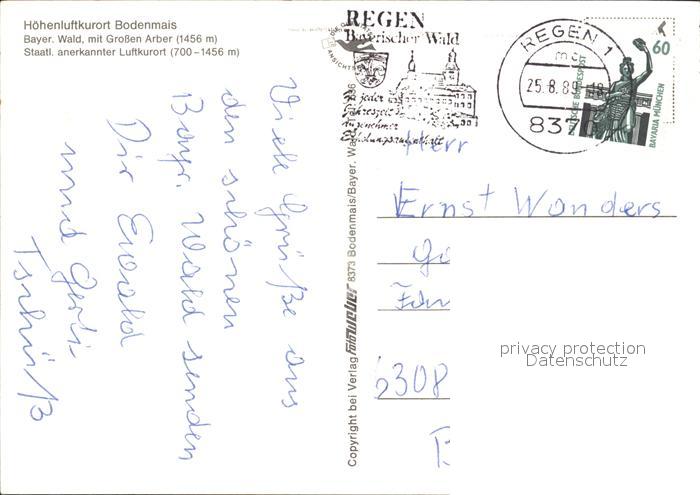 Höhenluftkurort Bodenmais
Bayer. Wald, mit Großen Arber (1456 m)
Staatl. anerkannter Luftkurort (700–1456 m)
REGEN
Bayerischer Wald
zu jeder
Jahreszeit
angenehmer
REGEN 1
25.8.89-18
837
60
DEUTSCHE BUNDESPOST
BAVARIA MÜNCHEN
Viele Grüße aus
den schönen
Bayr. Wald senden
Dir Ewald
und Gerti
Tschüß
Copyright bei Verlag 8373 Bodenmais/Bayer. Wald
Herr
Ernst Wonders
6308
privacy protection
Datenschutz